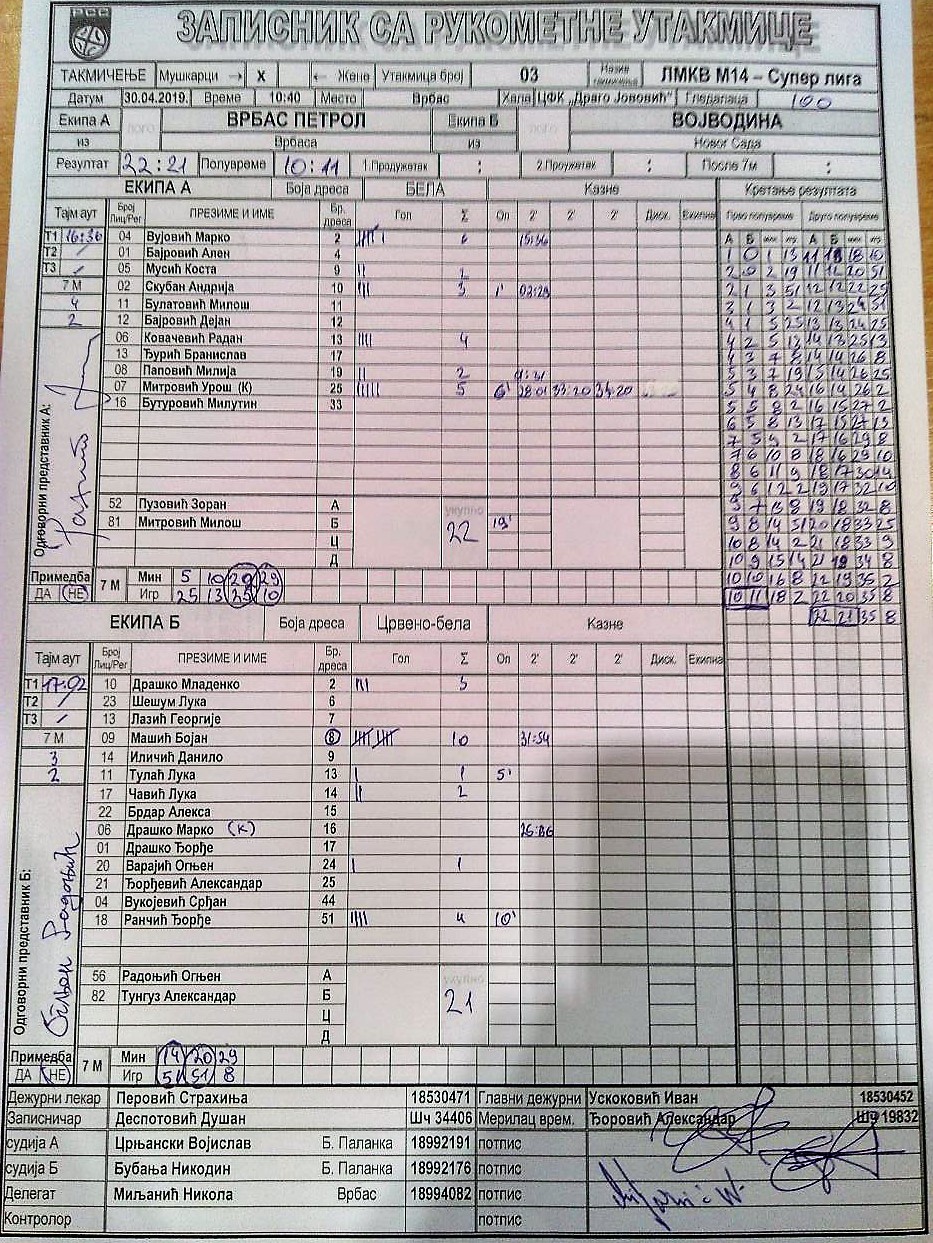 РСС
ЗАПИСНИК СА РУКОМЕТНЕ УТАКМИЦЕ
ТАКМИЧЕЊЕ Мушкарци → X ← Жене Утакмица број 03 Назив ЛМКВ М14 – Супер лига
Датум 30.04.2019. Време 10:40 Место Врбас Хала ЦФК „Драго Јововић“ Гледалаца 100
Екипа А лого ВРБАС ПЕТРОЛ Екипа Б лого ВОЈВОДИНА
из Врбаса из Новог Сада
Резултат 22:21 Полувреме 10:11 1.Продужетак : 2.Проужетак : После 7м :
ЕКИПА А Боја дреса БЕЛА Казне Кретање резултата
Тајм аут Број Лиц/Рег ПРЕЗИМЕ И ИМЕ Бр. дреса Гол Σ Оп 2' 2' 2' Диск. Екипна Прво полувреме Друго полувреме
Т1 16:36 04 Вујовић Марко 2 6 15:36
Т2 / 01 Бајровић Ален 4
Т3 / 05 Мусић Коста 9 2
7 М 02 Скубан Андрија 10 3 1'
4 11 Булатовић Милош 11
2 12 Бајровић Дејан 12
06 Ковачевић Радан 13 4
13 Ђурић Бранислав 17
08 Паповић Милија 19 2
07 Митровић Урош (К) 25 5 6' 28:01 33:20 34:20
16 Бутуровић Милутин 33
Одговорни представник А:
52 Пузовић Зоран А укупно
81 Митровић Милош Б 22 19'
Ц
Д
Примедба 7 М Мин 5 10 20 29
ДА НЕ Игр 25 13 25 10
А Б мин иго А Б мин иго
1 0 1 13 11 18 10
2 0 2 19 11 12 20 51
2 1 3 51 12 12 22 25
3 1 3 2 12 13 24 51
4 1 5 25 13 13 24 25
4 2 5 13 14 13 25 13
4 3 7 8 14 14 26 8
5 3 7 19 15 14 26 25
5 4 8 24 16 14 26 2
5 5 8 2 16 15 27 2
6 5 8 13 17 15 27 13
7 5 9 2 17 16 29 8
7 6 10 8 18 16 29 10
8 6 11 9 18 17 30 14
9 6 12 2 19 17 32 10
9 7 13 8 19 18 32 8
9 8 14 51 20 18 33 25
10 8 14 2 21 18 33 9
10 9 15 14 21 19 34 8
10 10 16 8 22 19 35 2
10 11 18 2 22 20 35 8
22 21 35 8
ЕКИПА Б Боја дреса Црвено-бела Казне
Тајм аут Број Лиц/Рег ПРЕЗИМЕ И ИМЕ Бр. дреса Гол Σ Оп 2' 2' 2' Диск. Екипна
Т1 17:02 10 Драшко Младенко 2 3
Т2 / 23 Шешум Лука 6
Т3 / 13 Лазић Георгије 7
7 М 09 Машић Бојан 8 10 31:54
3 14 Иличић Данило 9
2 11 Тулаћ Лука 13 1 5'
17 Чавић Лука 14 2
22 Брдар Алекса 15
06 Драшко Марко (К) 16
01 Драшко Ђорђе 17
20 Варајић Огњен 24 1
21 Ђорђевић Александар 25
04 Вукојевић Срђан 44
18 Ранчић Ђорђе 51 4 10'
Одговорни представник Б:
Огњен Радоњић
56 Радоњић Огњен А укупно
82 Тунгуз Александар Б 21
Ц
Д
Примедба 7 М Мин 14 20 29
ДА НЕ Игр 51 51 8
Дежурни лекар Перовић Страхиња 18530471 Главни дежурни Ускоковић Иван 18530452
Записничар Деспотовић Душан Шч 34406 Мерилац врем. Ђоровић Александар Шч 19832
судија А Црњански Војислав Б. Паланка 18992191 потпис
судија Б Бубања Никодин Б. Паланка 18992176 потпис
Делегат Миљанић Никола Врбас 18994082 потпис
Контролор потпис